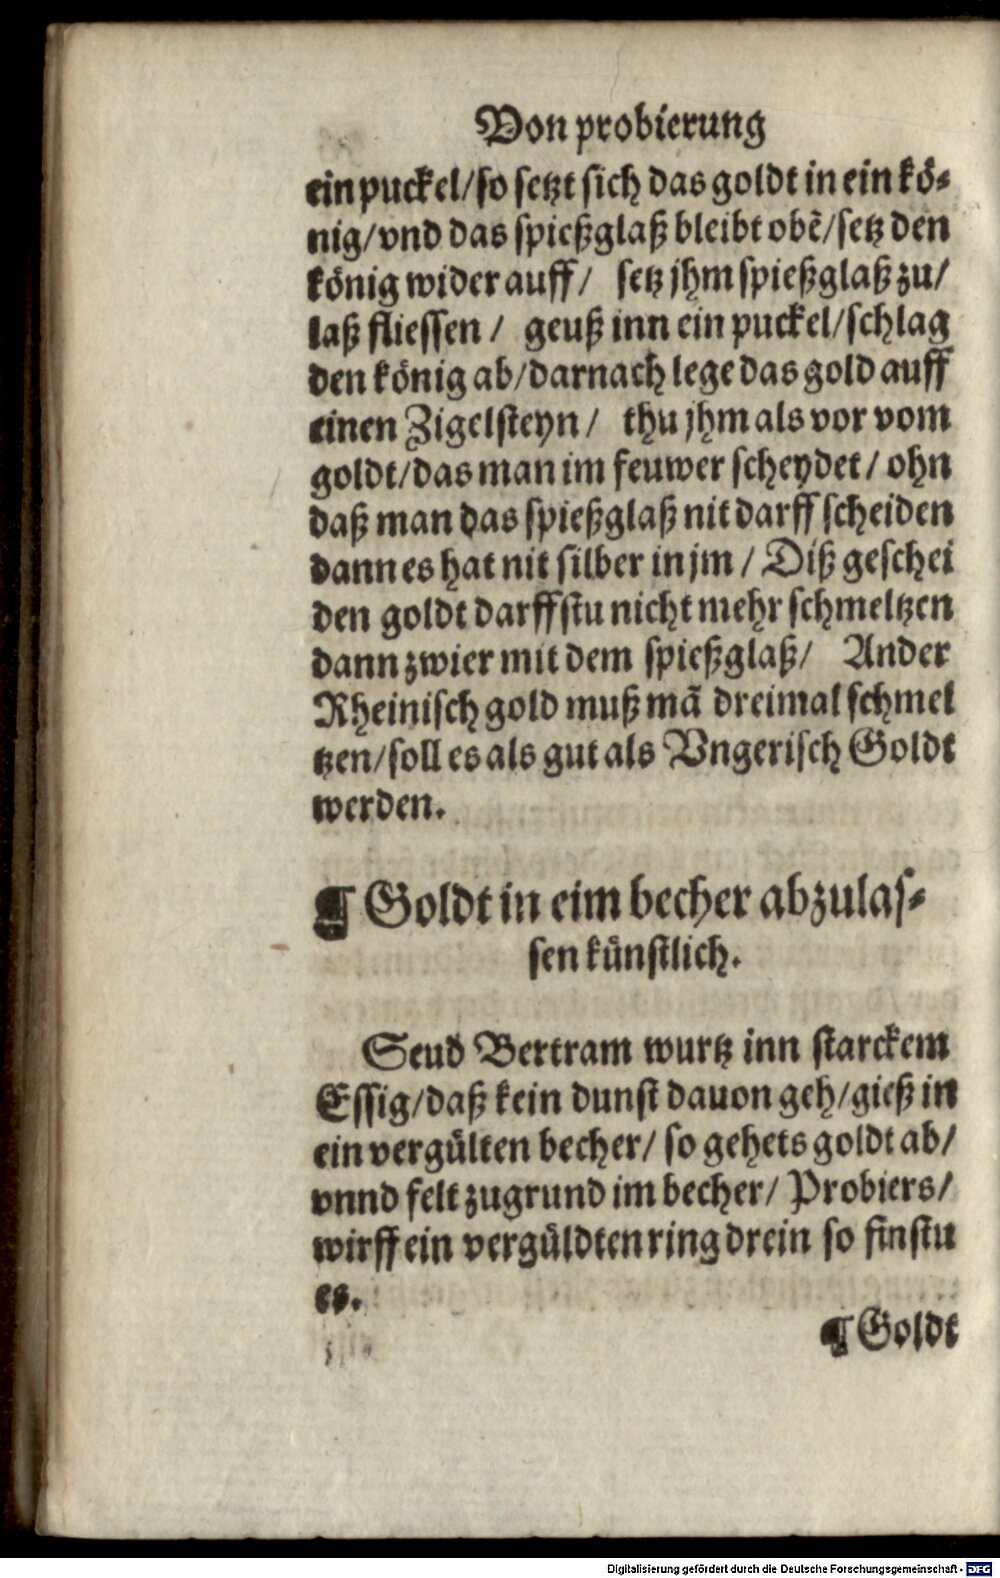 Von probierung
ein puckel/so setzt sich das goldt in ein kö⸗
nig/vnd das spießglaß bleibt obẽ/setz den
könig wider auff/ setz jhm spießglaß zu/
laß fliessen/ geuß inn ein puckel/schlag
den könig ab/darnach lege das gold auff
einen Zigelsteyn/ thu jhm als vor vom
goldt/das man im feuwer scheydet/ ohn
daß man das spießglaß nit darff scheiden
dann es hat nit silber in jm/ Diß geschei
den goldt darffstu nicht mehr schmeltzen
dann zwier mit dem spießglaß/ Ander
Rheinisch gold muß mã dreimal schmel
tzen/soll es als gut als Vngerisch Goldt
werden.
¶ Goldt in eim becher abzulas⸗
sen künstlich.
Seud Bertram wurtz inn starckem
Essig/daß kein dunst dauon geh/gieß in
ein vergülten becher/ so gehets goldt ab/
vnnd felt zugrund im becher/ Probiers/
wirff ein vergüldten ring drein so finstu
es.
¶ Goldt
Digitalisierung gefördert durch die Deutsche Forschungsgemeinschaft - DFG